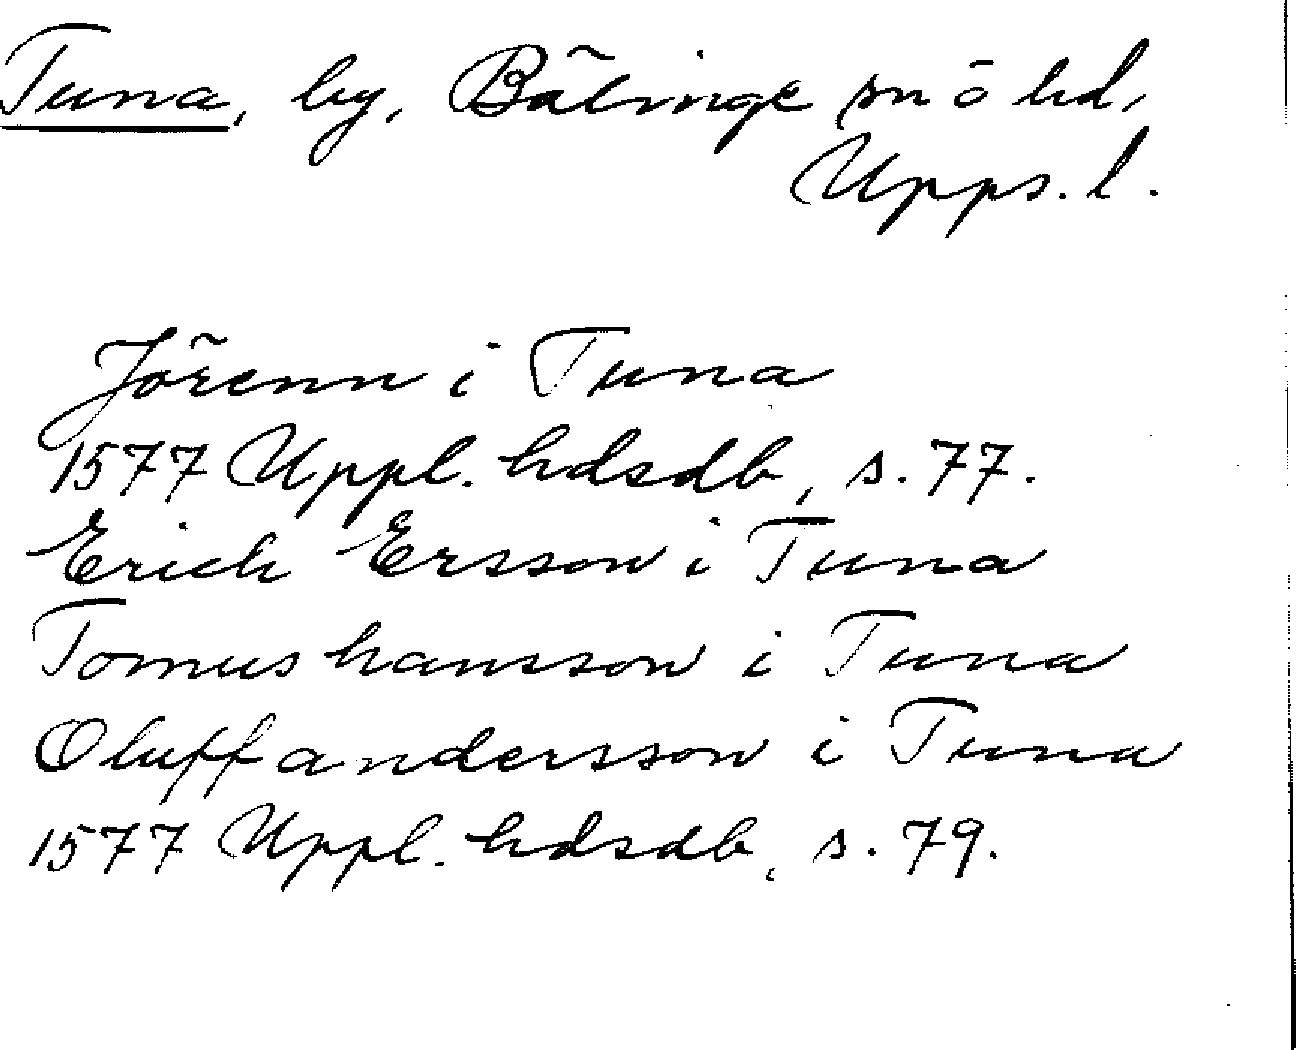 Tuna, by, Bälinge sn o hd,
Upps. l.
Jörenn i Tuna
1577 Uppl. hdsdb, s. 77.
Erich Ersson i Tuna
Tomus hansson i Tuna
Oluff andersson i Tuna
1577 Uppl. hdsdb, s. 79.